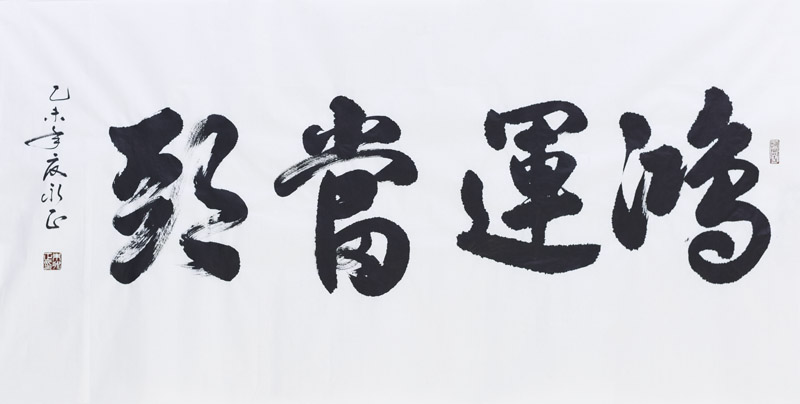 鴻運當頭
乙未年夏永正